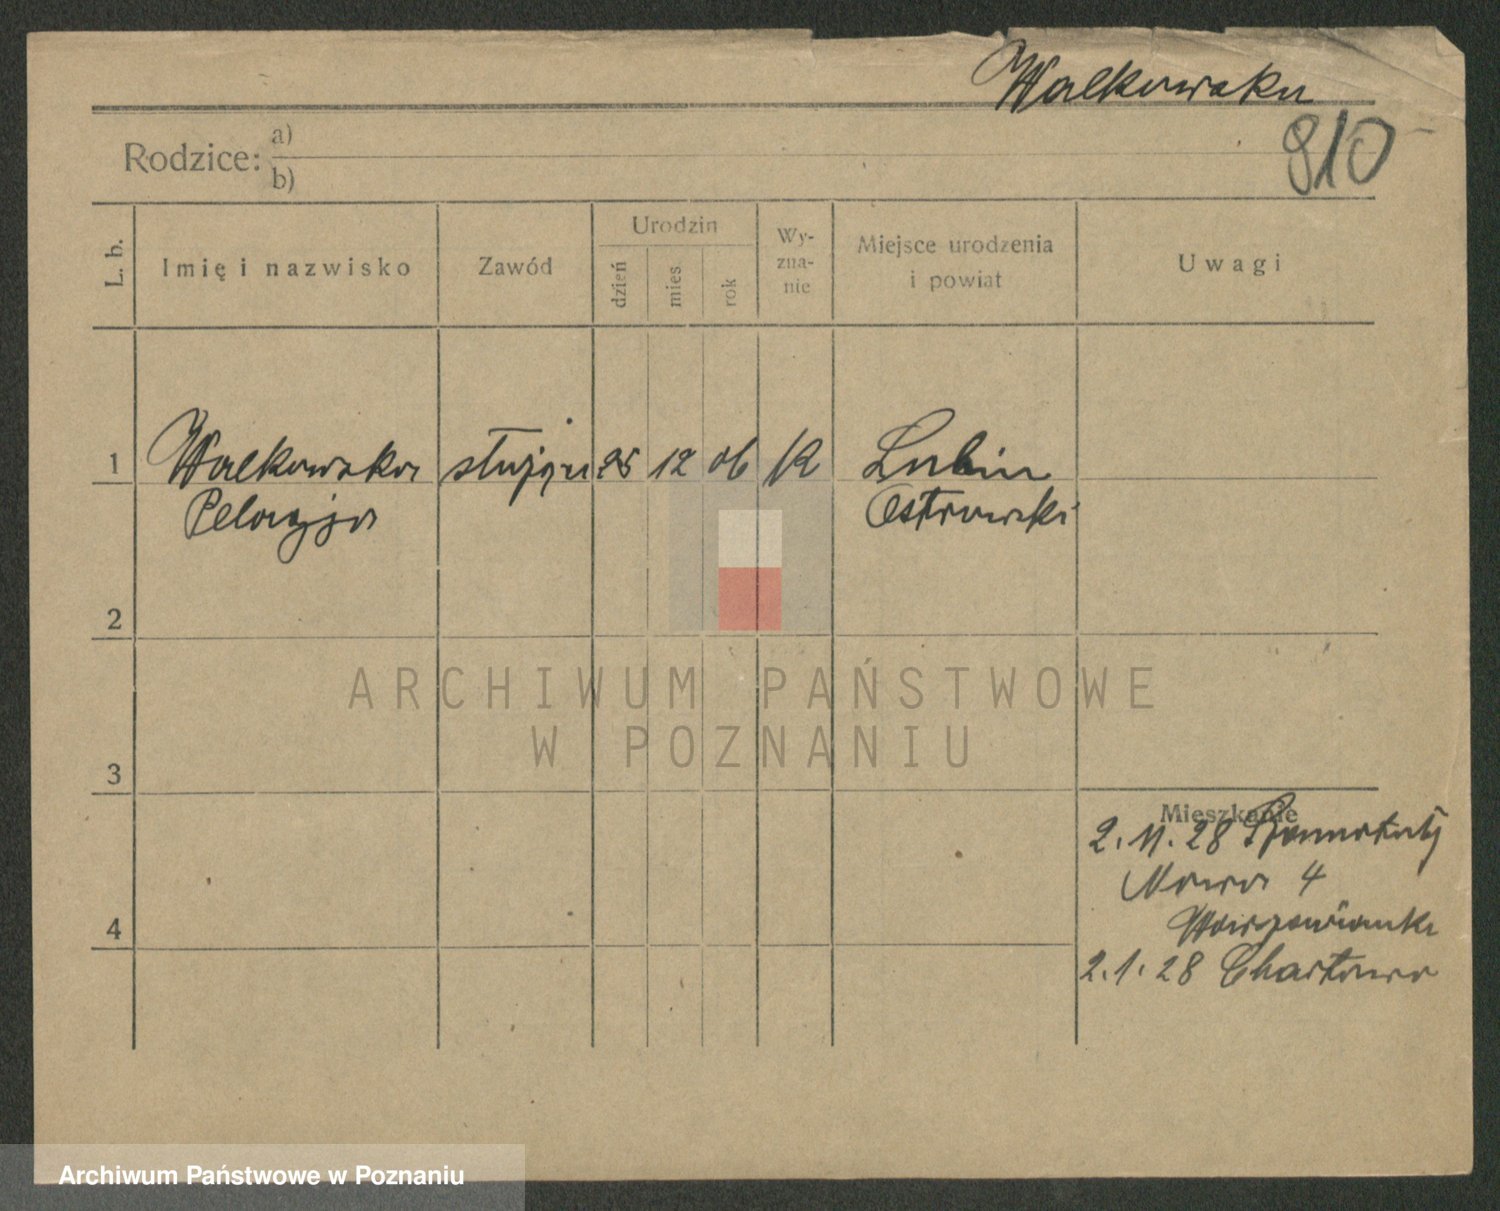 Walkowska
910
Rodzice: a)
b)
L. b.
Imię i nazwisko
Zawód
Urodzin
dzień
mies
rok
Wy-
zna-
nie
Miejsce urodzenia
i powiat
Uwagi
1 Walkowska służąca 25 12 06 K Lubin
Pelagja Ostrowski
2
ARCHIWUM PAŃSTWOWE
W POZNANIU
3
Mieszkanie
2.11.28
4
2.1.28 Chartowo
Archiwum Państwowe w Poznaniu